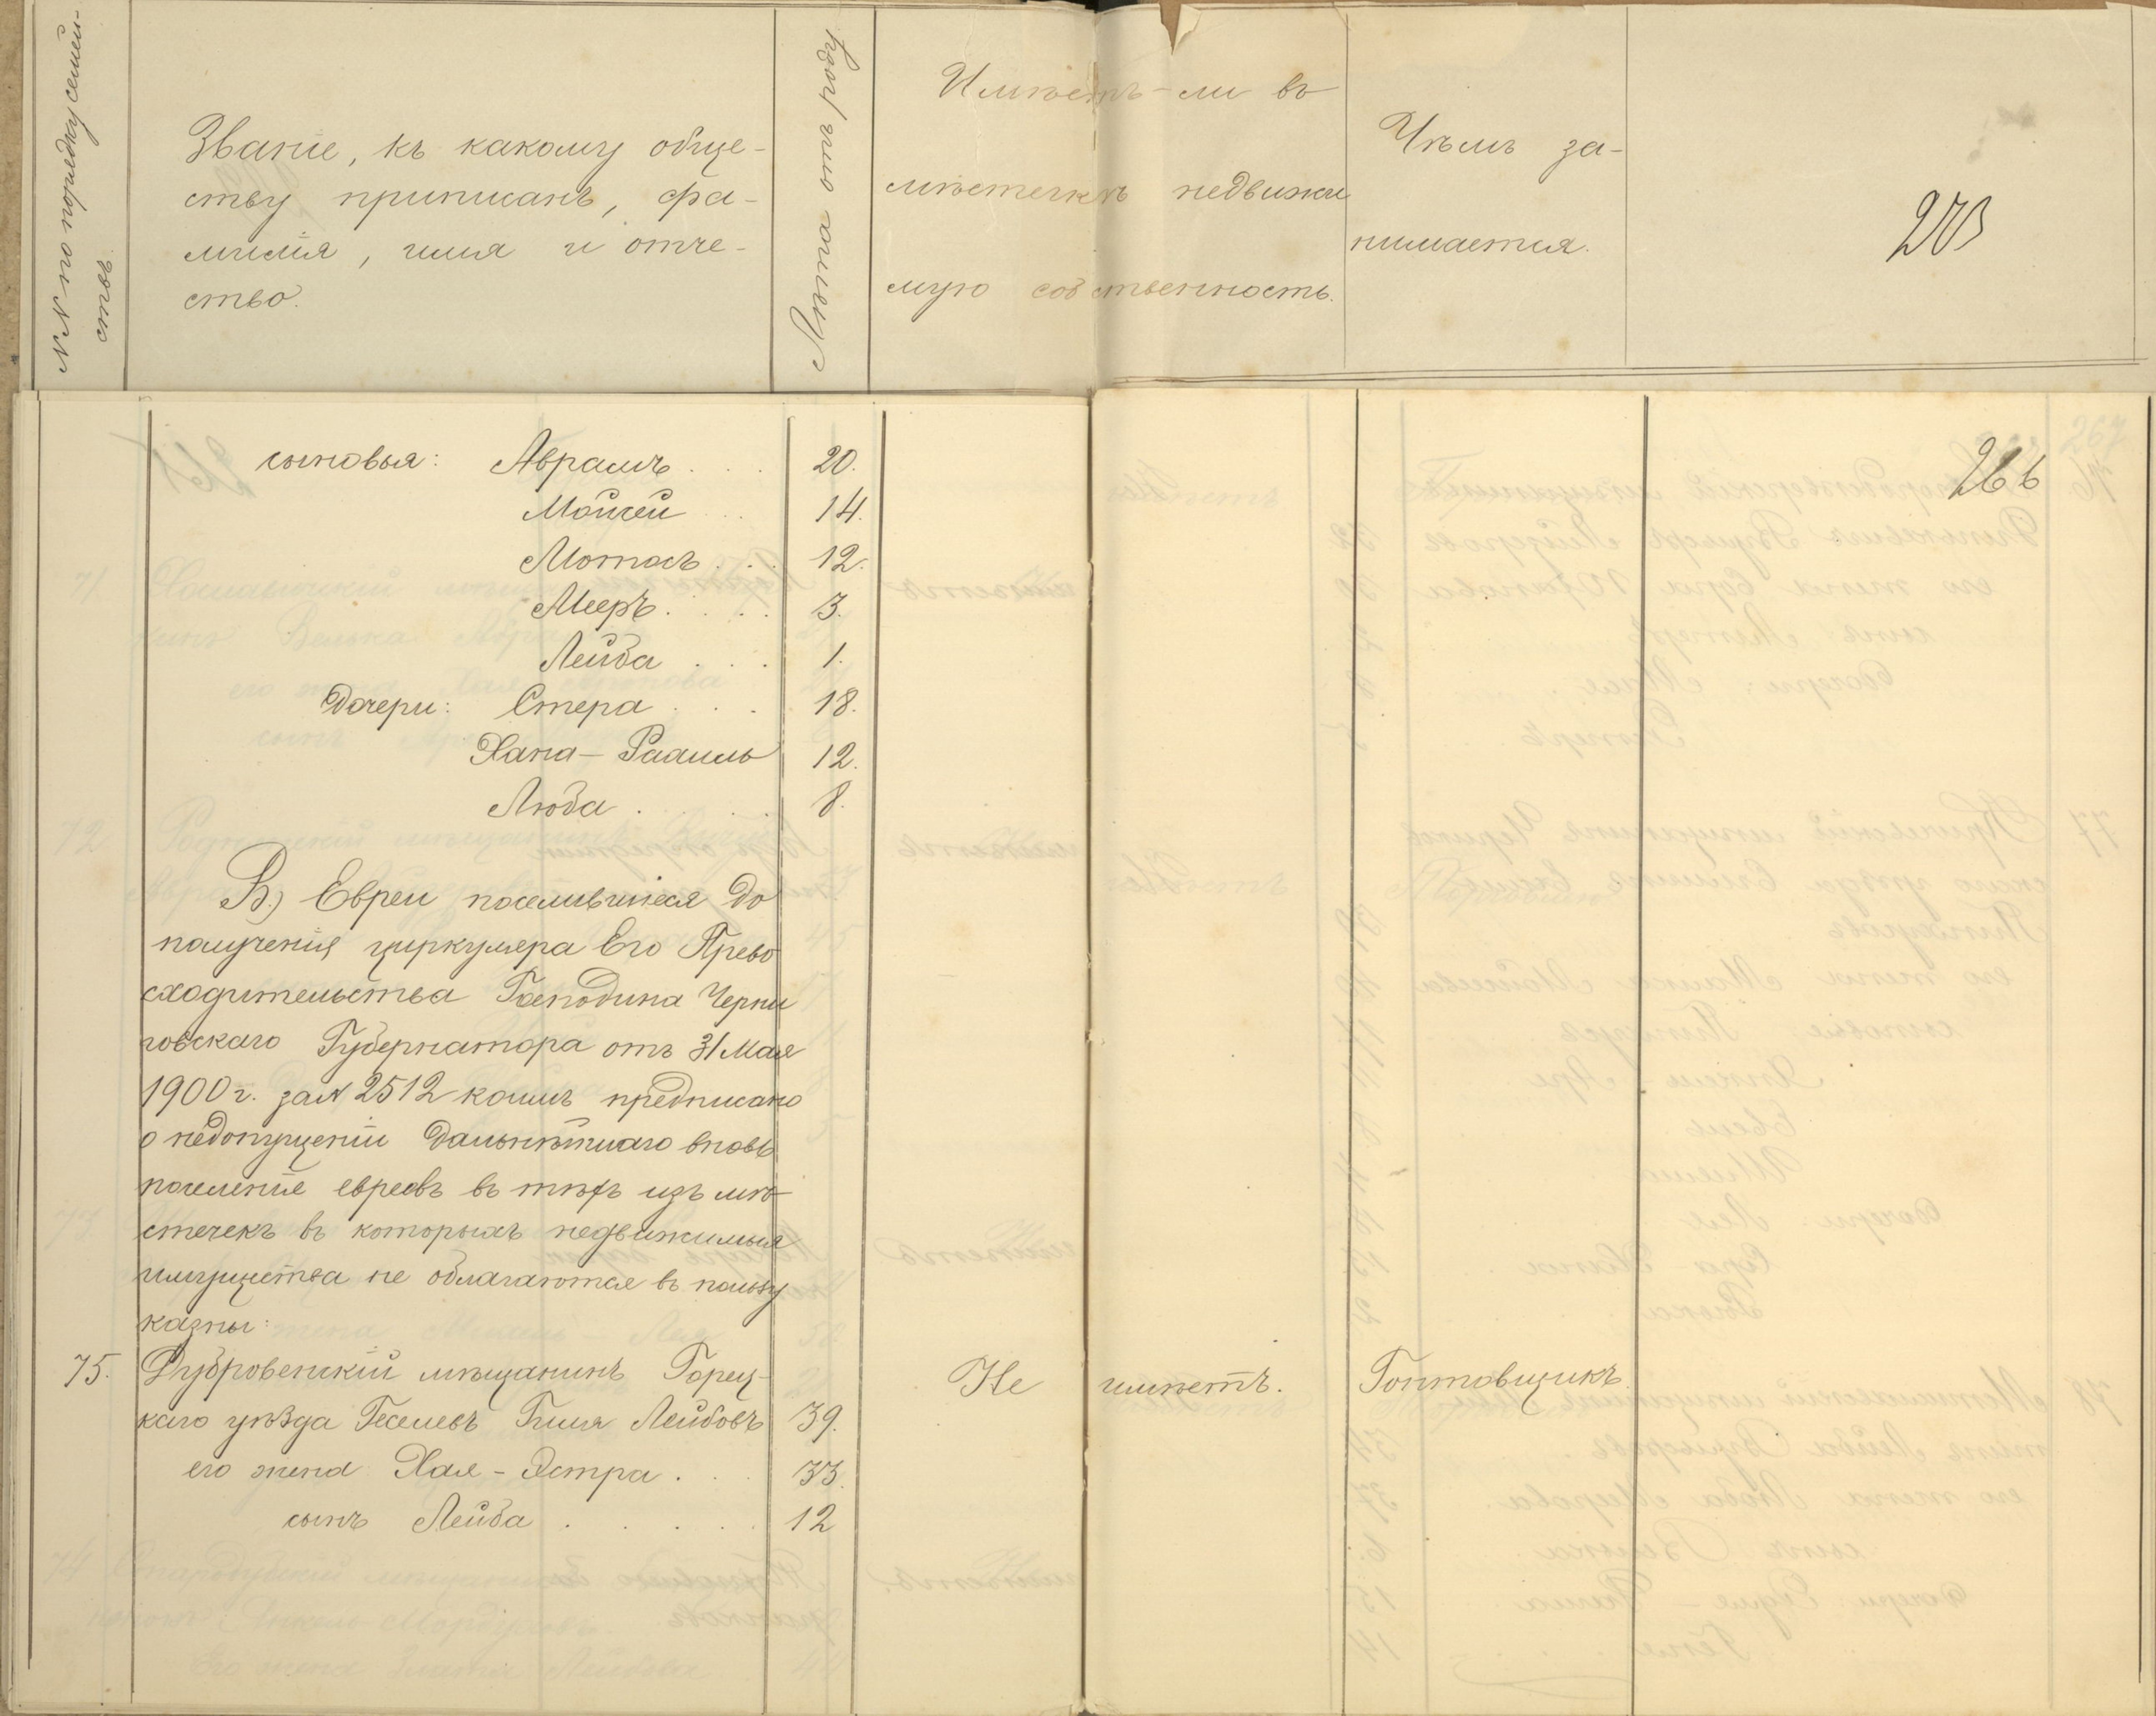 №№ по порядку семей-
ствъ.
Званіе, къ какому обще-
ству приписанъ, фа-
милія, имя и отче-
ство.
Лѣта отъ роду
Имѣетъ-ли въ
мѣстечкѣ недвижи
мую собственность.
Чѣмъ за-
нимается.
203
266
сыновья: Абрамъ . . . 20.
Мойсей . . 14.
Мотось . . . 12.
Мееръ . . . . 3.
Лейба . . . 1.
дочери: Стера . . . 18.
Хана-Рааиль 12.
Люба . . . . 8.
В) Евреи поселившіеся до
полученія циркуляра Его Прево
сходительства Господина Черни
говскаго Губернатора отъ 31 Мая
1900 г. за № 2512 коимъ предписано
о недопущеніи дальнѣйшаго вновь
поселенія евреевъ въ тѣхъ изъ мѣ-
стечекъ въ которыхъ недвижимыя
имущества не облагаются въ пользу
казны:
75. Дубровенскій мѣщанинъ Горец- Не имѣетъ. Гонтовщикъ.
каго уѣзда Геселевъ Гиля Лейбовъ 39.
его жена Хая-Эстра . . . 33.
сынъ Лейба . . . . . 12